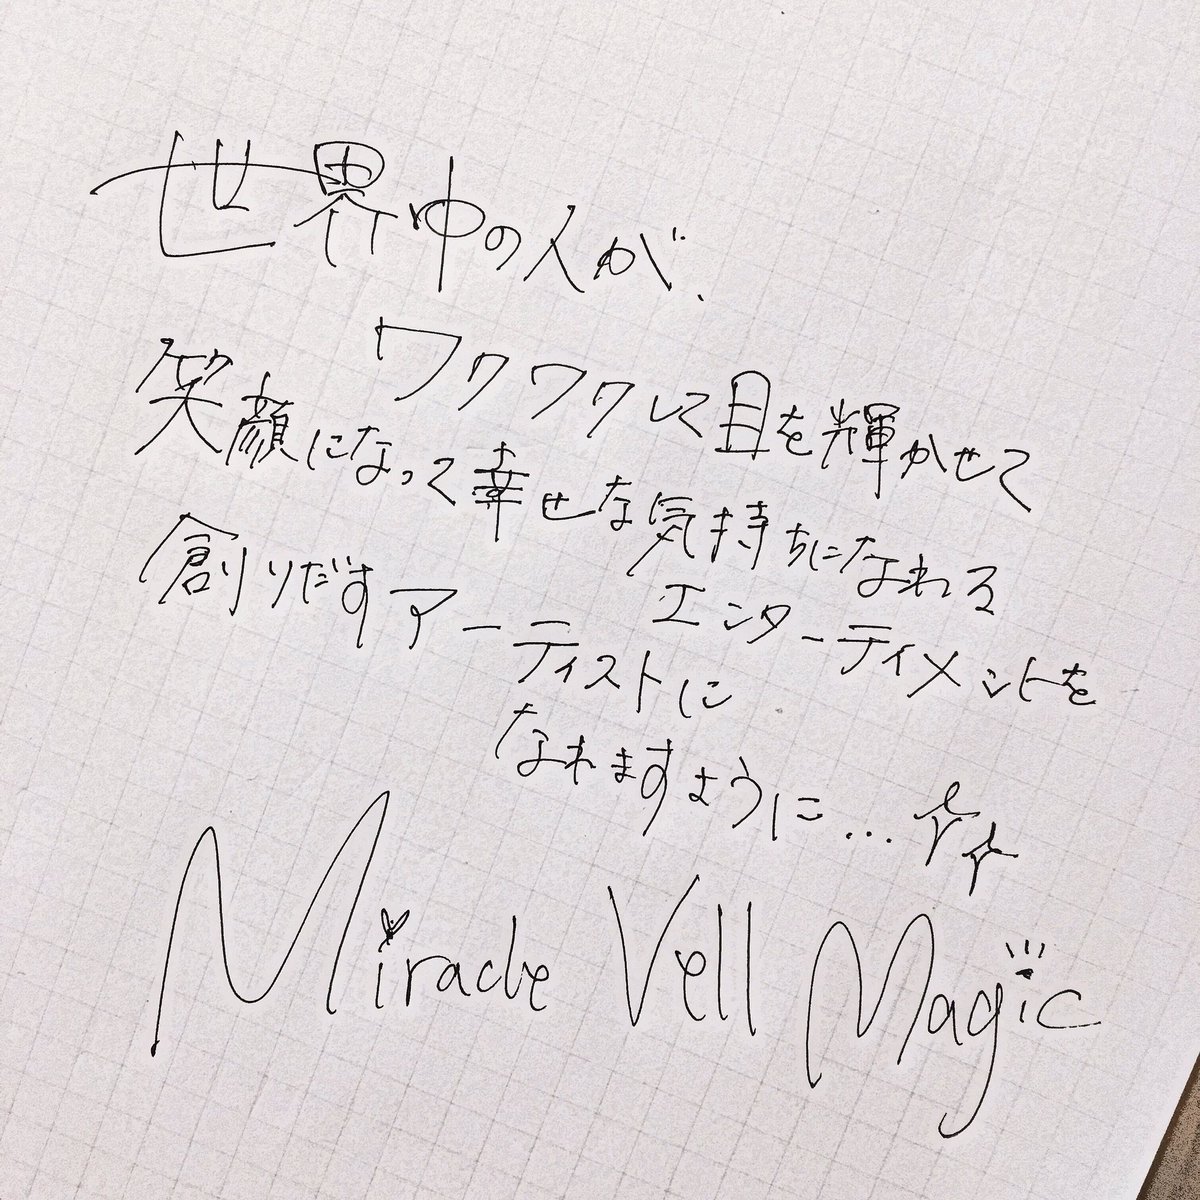 世界中の人が、
ワクワクして目を輝かせて
笑顔になって幸せな気持ちになれる
エンターティメントを
創りだすアーティストに
なれますように...
Miracle Vell Magic